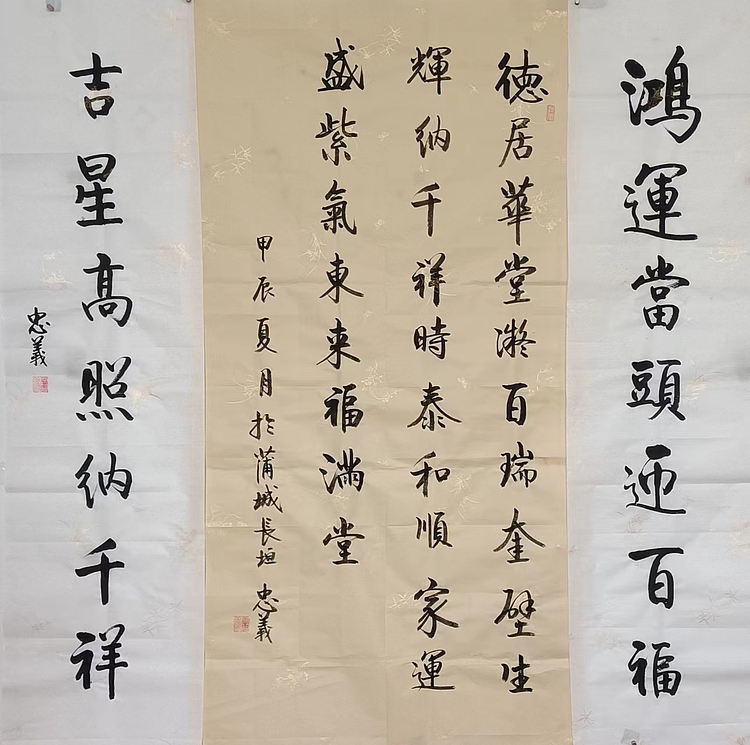 鴻運當頭迎百福
德居華堂凝百瑞奎壁生
輝納千祥時泰和順家運
盛紫氣東来福滿堂
甲辰夏月於蒲城長垣忠義
吉星髙照納千祥
忠義